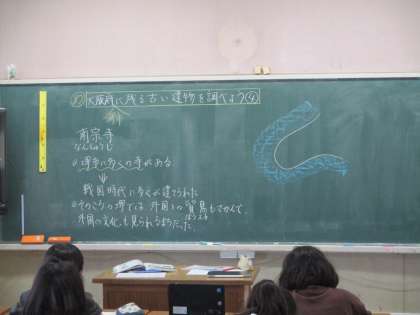 大阪府に残る古い建物を調べよう④
南宗寺
なんしゅうじ
堺市に多くの寺がある
⇓
戦国時代に多くが建てられた
そのころの堺では、外国との貿易もさかんで、
ぼうえき
外国の文化も見られるまちだった。